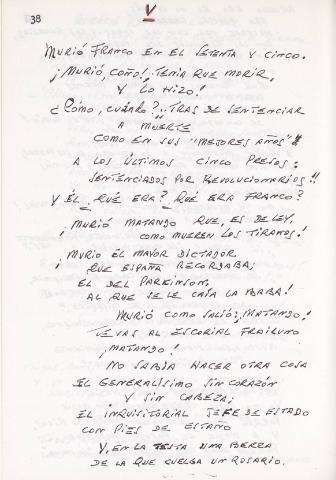 38
V
MURIÓ FRANCO EN EL SETENTA Y CINCO.
¡MURIÓ, COÑO!, TENÍA QUE MORIR,
Y LO HIZO!
¿CÓMO, CUÁNDO?. TRAS DE SENTENCIAR
A MUERTE
COMO EN SUS "MEJORES AÑOS"!!
A LOS ÚLTIMOS CINCO PRESOS:
SENTENCIADOS POR REVOLUCIONARIOS!!
Y ÉL, QUÉ ERA? QUE ERA FRANCO?
¡MURIÓ MATANDO QUE, ES DE LEY,
COMO MUEREN LOS TIRANOS!
¡MURIO EL MAYOR DICTADOR
QUE ESPAÑA RECORDABA;
EL DEL PARKINSON,
AL QUE SE LE CAÍA LA BABA!
MURIÓ COMO SALIÓ: ¡MATANDO!
AL ESCORIAL FRAILUNO
¡MATANDO!
NO SABÍA HACER OTRA COSA
EL GENERALÍSIMO SIN CORAZÓN
Y SIN CABEZA;
EL INQUISITORIAL JEFE DE ESTADO
CON PIES DE ESTAÑO
Y, EN LA TESTA UNA BERZA
DE LA QUE CUELGA UN ROSARIO.